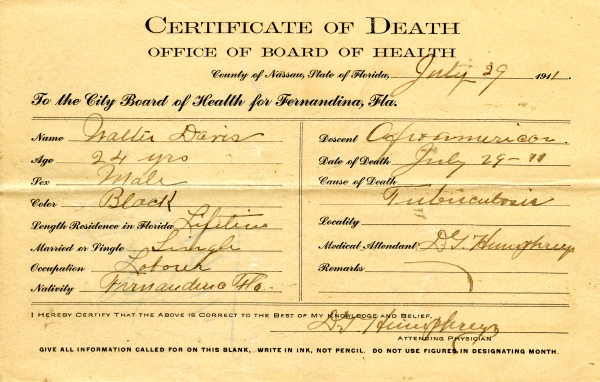 CERTIFICATE OF DEATH
OFFICE OF BOARD OF HEALTH
County of Nassau, State of Florida, July 29 1911.
To the City Board of Health for Fernandina, Fla.
Name Walter Davis
Age 24 yrs
Sex Male
Color Black
Length Residence in Florida Lifetime
Married or Single Single
Occupation Laborer
Nativity Fernandina Fla-
Descent Afroamerican.
Date of Death July 29-11
Cause of Death
Tuberculosis
Locality
Medical Attendant DG Humphreys
Remarks
I HEREBY CERTIFY THAT THE ABOVE IS CORRECT TO THE BEST OF MY KNOWLEDGE AND BELIEF.
DG Humphreys
ATTENDING PHYSICIAN
GIVE ALL INFORMATION CALLED FOR ON THIS BLANK, WRITE IN INK, NOT PENCIL. DO NOT USE FIGURES IN DESIGNATING MONTH.